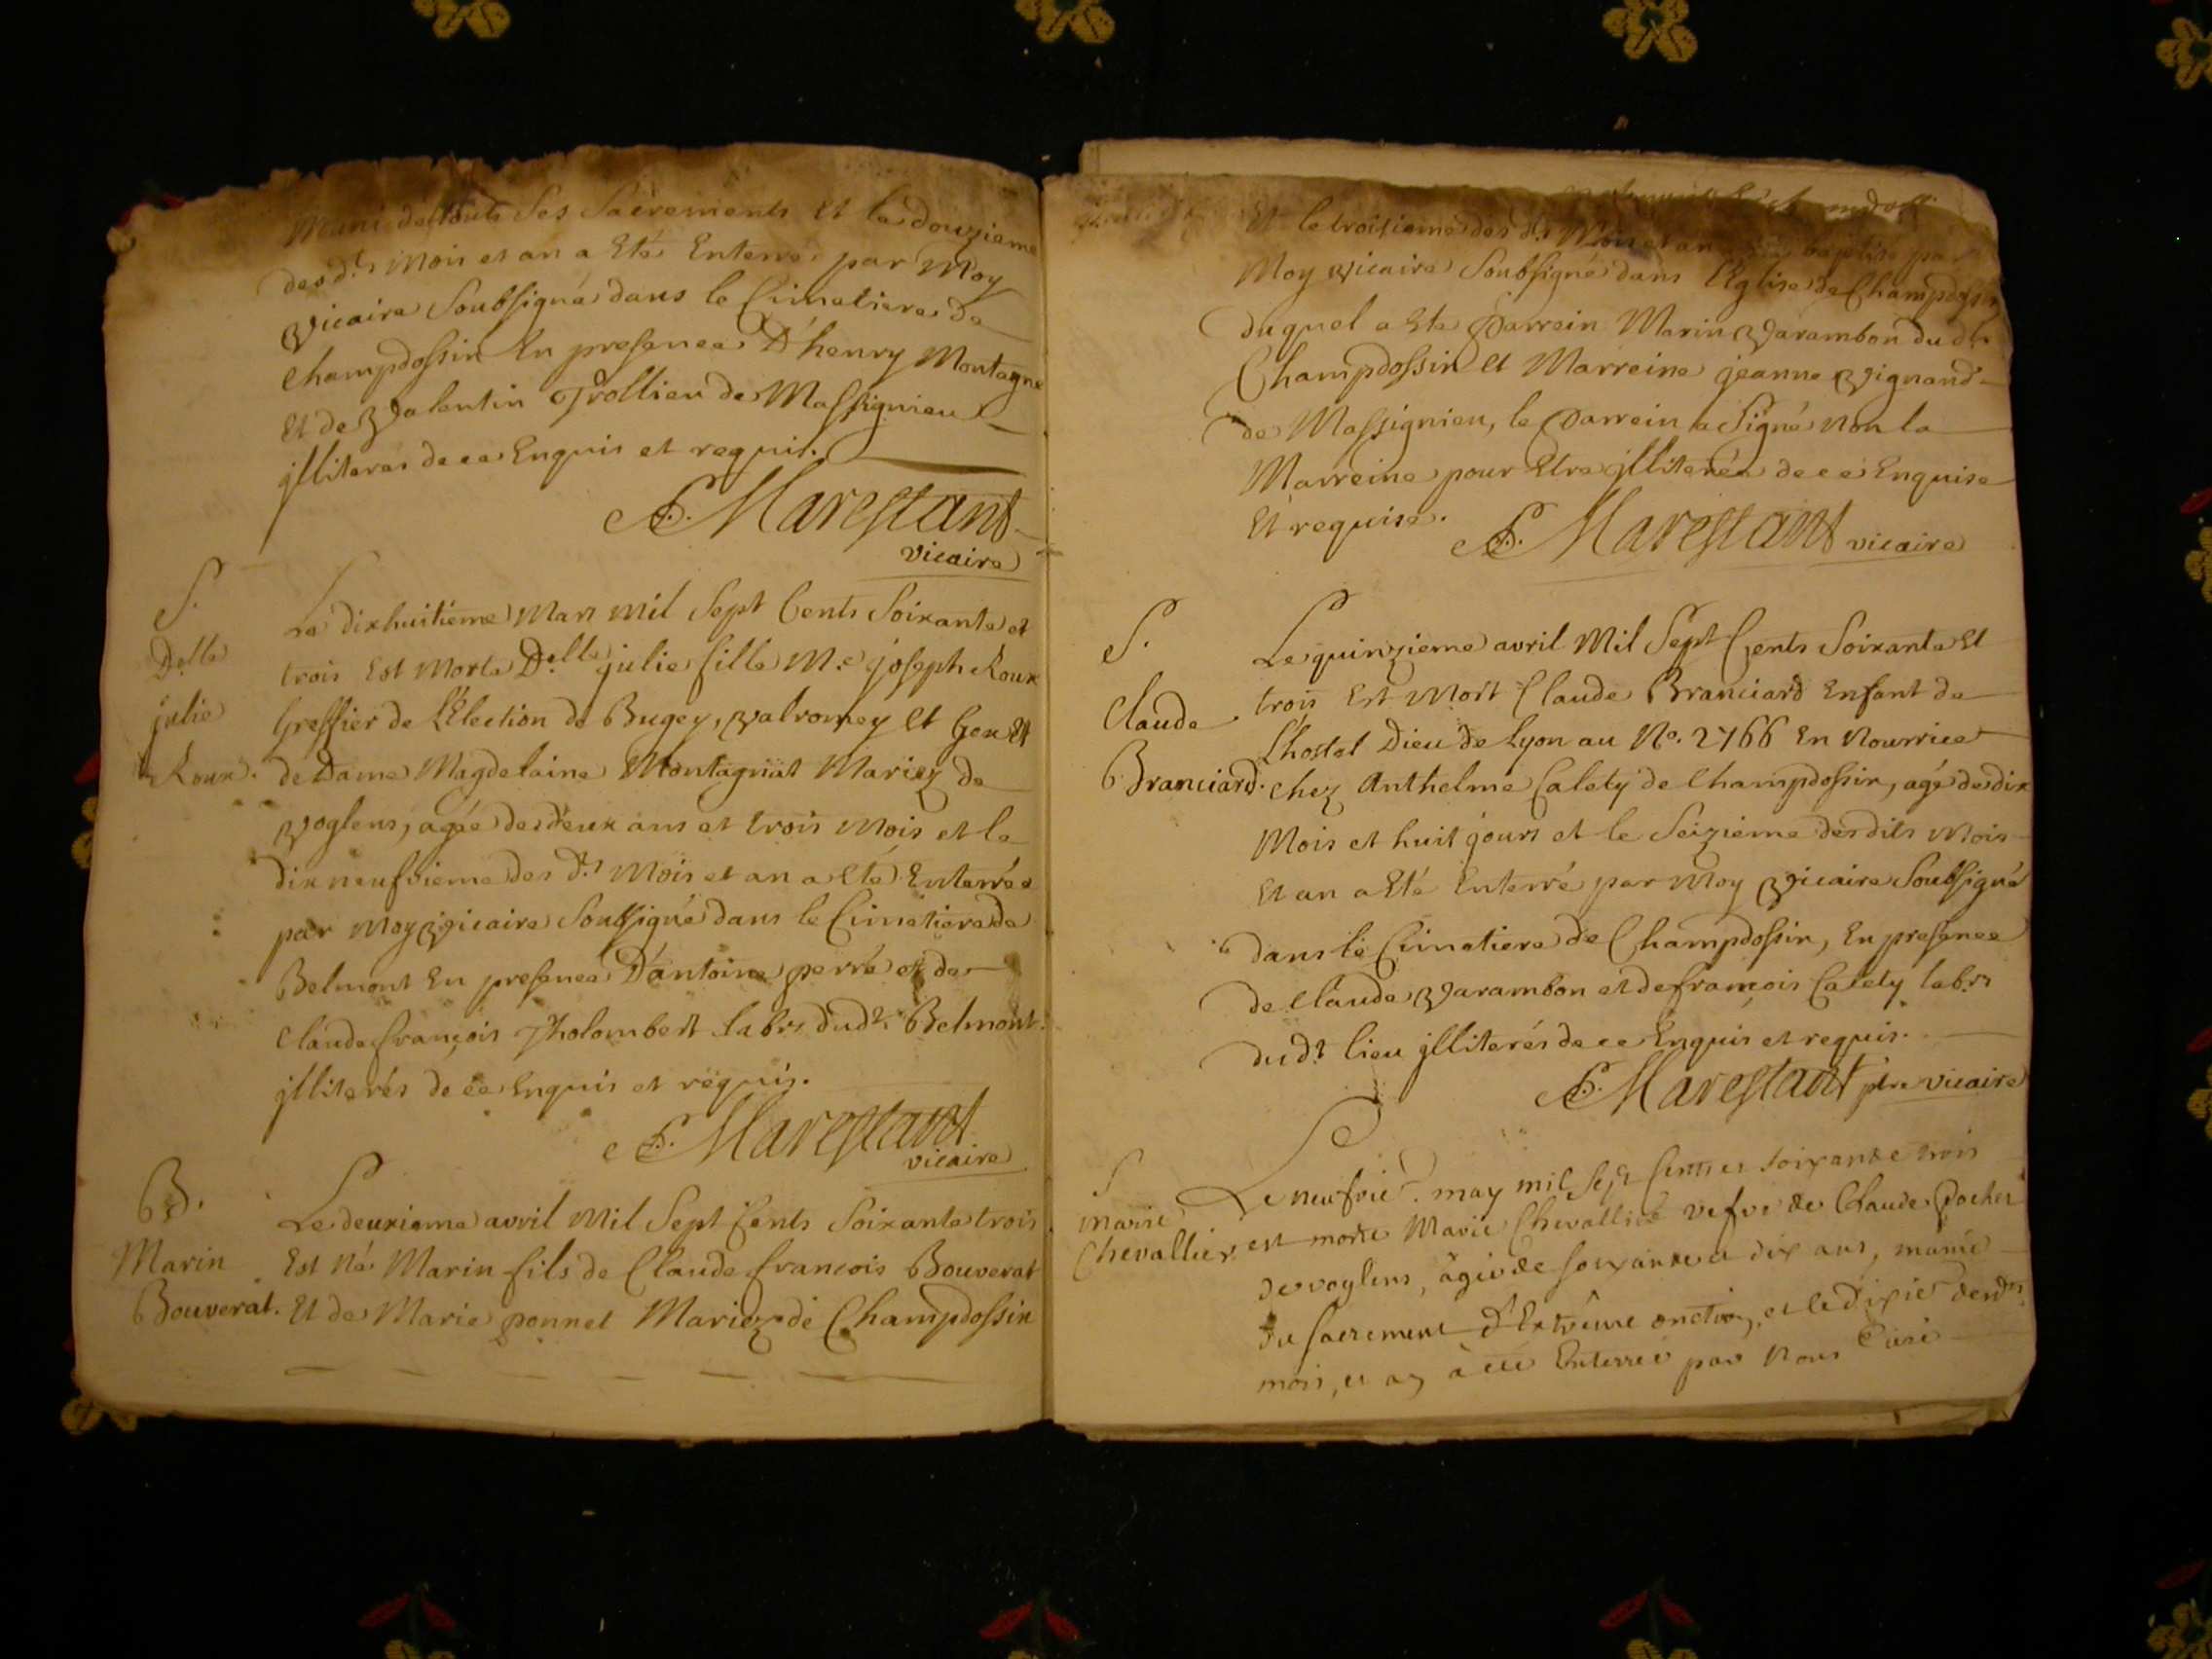 Muni de touts Ses Sacrements Et le douzieme
des d.ts Mois et an a Eté Enterré par Moy
Vicaire Soubsigné dans le Cimetiere de
Champdossin En presence D'henry Montagne
Et de Valentin Trollieu de Massignieu
jlliterés de ce Enquis et requis.
Marestant
vicaire
S.
D.elle
julie
Roux.
Le dixhuitieme Mars Mil Sept Cents Soixante et
trois Est Morte D.elle julie fille M.e joseph Roux
Greffier de L'Election de Bugey, Valromey Et Gex Et
de Dame Magdelaine Montagnat Mariez de
Voglens, agée de deux ans et trois Mois et le
dixneufvieme des d.ts Mois et an a Eté Enterrée
par Moy Vicaire Soubsigné dans le Cimetiere de
Belmont En presence D'antoine perré et de
Claude françois Tholombert labrs dud.t Belmont.
jlliterés de ce Enquis et requis.
Marestant
vicaire
B.
Marin
Bouverat.
Le deuxieme avril Mil Sept Cents Soixante trois
Est Né Marin fils de Claude francois Bouverat
Et de Marie ponnet Mariez de Champdossin
Et le troisieme des d.ts Mois et an baptisé par
Moy Vicaire Soubsigné dans l'Eglise de Champdossin
duquel a Eté Parrein Marin Varambon dud.t
Champdossin Et Marreine jeanne Vignand
de Massignieu, le Parrein a Signé Non la
Marreine pour Etre jlliterée de ce Enquise
Et requise.
Marestant vicaire
S.
Claude
Branciard.
Le quinzieme avril Mil Sept Cents Soixante Et
trois Est Mort Claude Branciard Enfant de
L'hostel Dieu de Lyon au No. 2766 En Nourrice
chez Anthelme Calety de Champdossin, agé de dix
Mois et huit jours et le Seizieme desdits Mois
Et an a Eté Enterré par Moy Vicaire Soubsigné
dans le Cimetiere de Champdossin, En presence
de Claude Varambon et de françois Calety labrs
dud.t lieu jlliterés de ce Enquis et requis.
Marestant ptre vicaire
S
marie
Chevallier
Le neufvie. may mil sept cents et soixante trois
est morte Marie Chevallier vefve de Claude Pochet
de voglens, âgée de soixante et dix ans, munie
du sacrement d'Extrême onction, et le dixie desdts
mois, et an à été Enterrée par Nous Curé